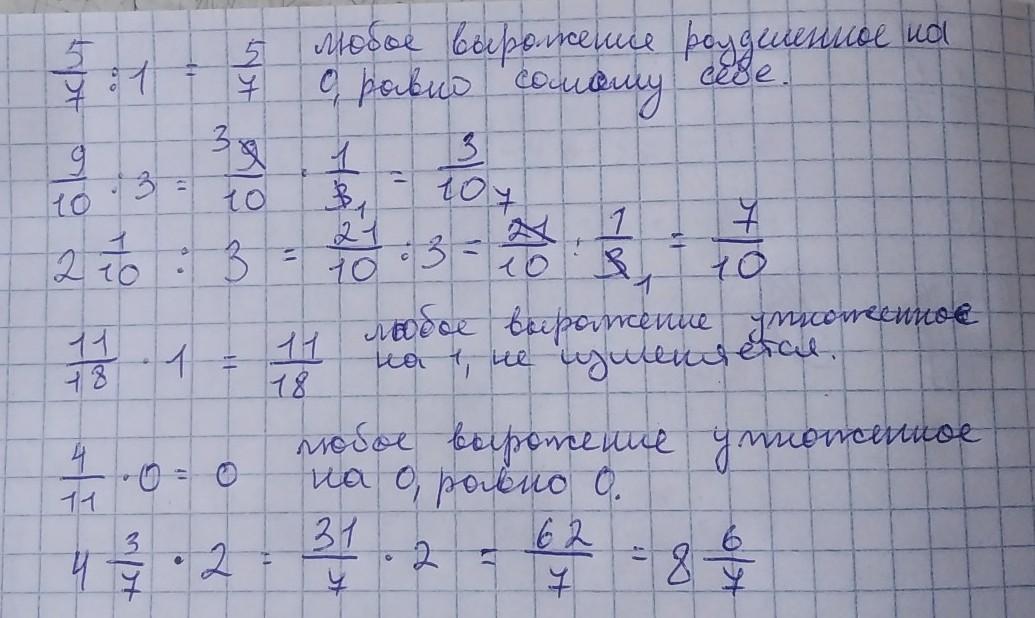 5/7 : 1 = 5/7 любое выражение разделенное на
0, равно самому себе.
9/10 : 3 = 3 9/10 · 1/3 1 = 3/10
2 1/10 : 3 = 21/10 : 3 = 7 21/10 · 1/3 1 = 7/10
11/18 · 1 = 11/18 любое выражение умноженное
на 1, не изменяется.
4/11 · 0 = 0 любое выражение умноженное
на 0, равно 0.
4 3/7 · 2 = 31/7 · 2 = 62/7 = 8 6/7